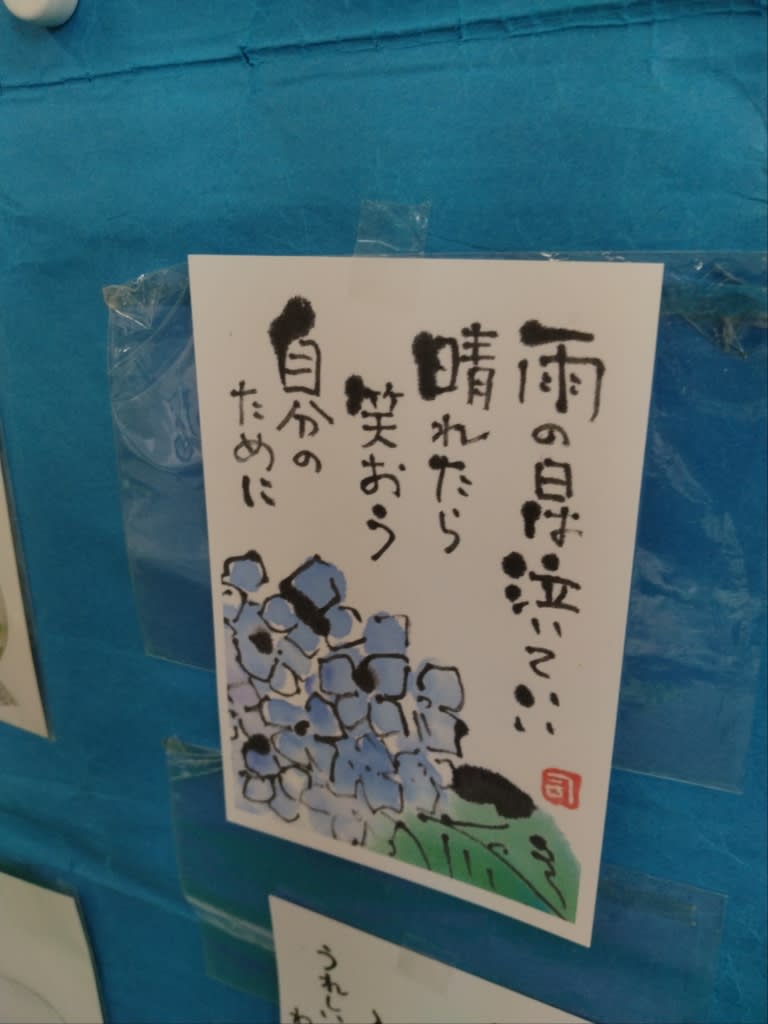 雨の日は泣いていい
晴れたら
笑おう
自分の
ために
司
うれしい